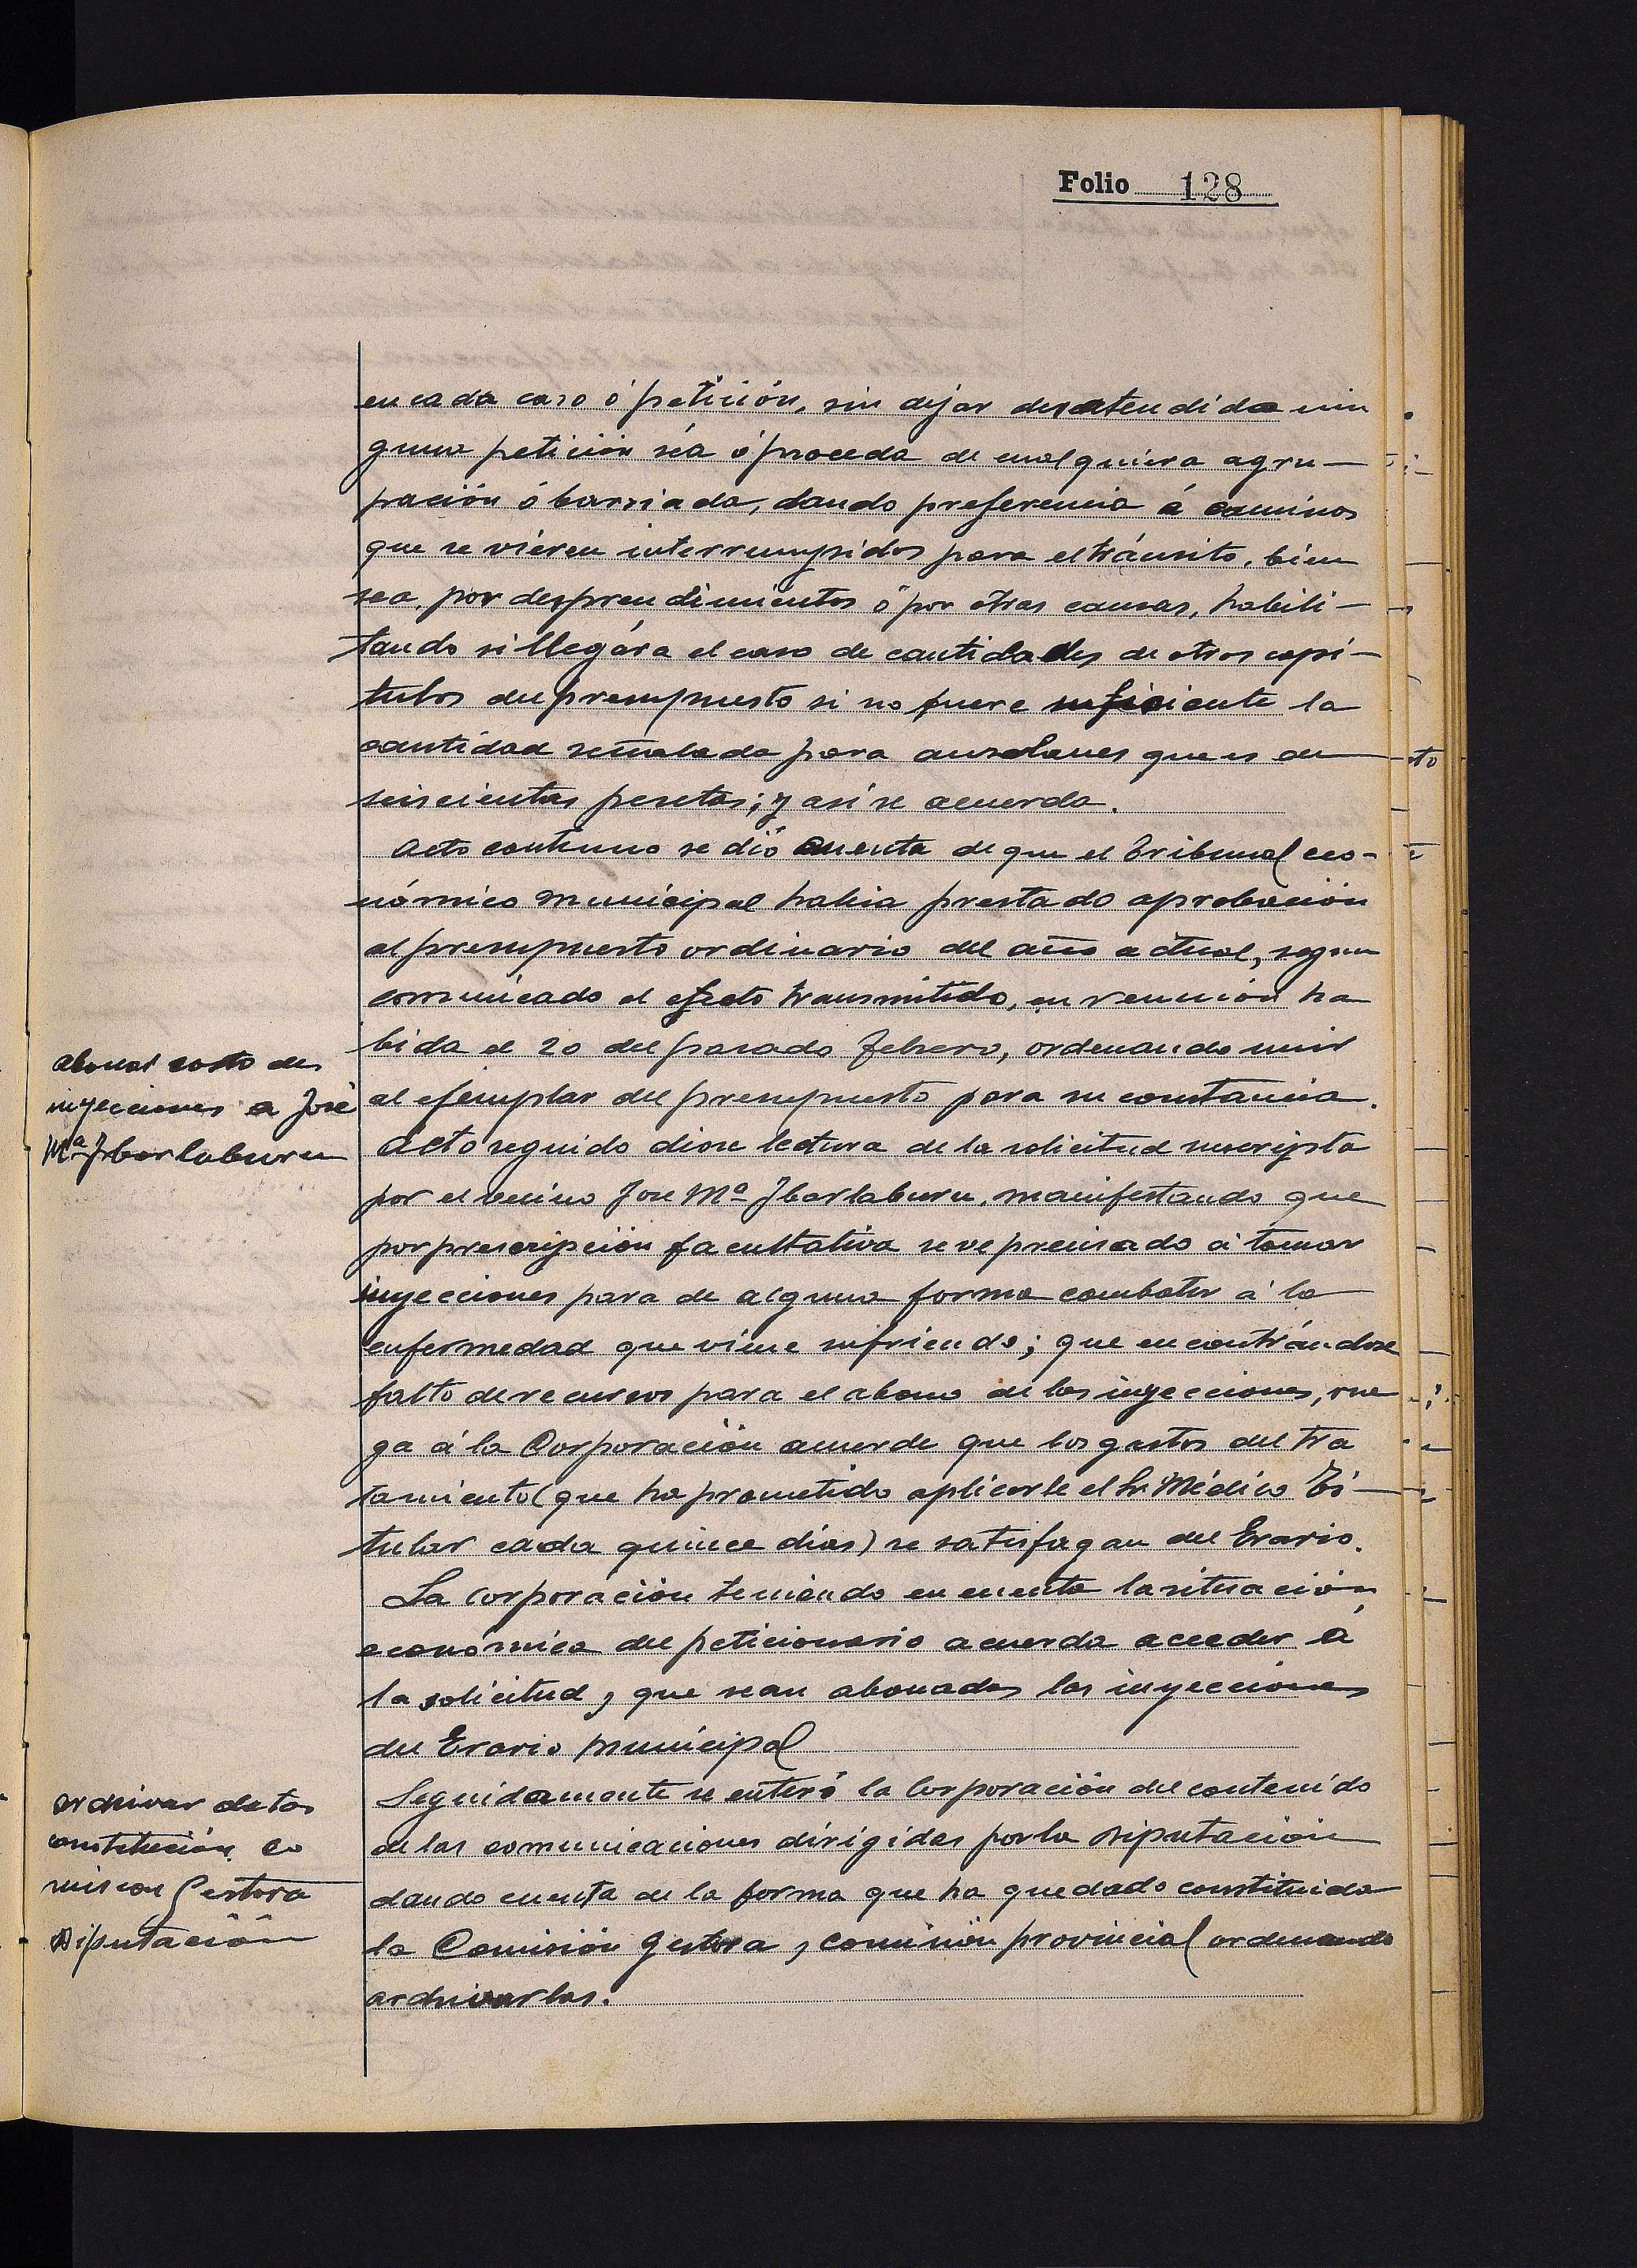 Folio 128
en cada caso ó petición, sin dejar desatendida nin
guna petición séa ó proceda de cualquiera agru-
pación ó barriada, dando preferencia á caminos
que se vieren interrumpidos para el tránsito, bien
sea, por desprendimientos ó por otras causas, habili-
tando si llegára el caso de cantidades de otros capí-
tulos del presupuesto si no fuere suficiente la
cantidad señalada para auzolanes que es de
seiscientas pesetas; y así se acuerda.
Acto continuo se dió cuenta de que el Tribunal eco-
nómico municipal habia prestado aprobación
al presupuesto ordinario del año actual, segun
comunicado al efecto transmitido, en reunión ha
bida el 20 del pasado Febrero, ordenando unir
al ejemplar del presupuesto para su constancia.
abonar costo de
inyecciones a José
Mª Ibarlaburu
Acto seguido diose lectura de la solicitud suscripta
por el vecino José Mª Ibarlaburu, manifestando que
por prescripción facultativa se ve precisado á tomar
inyecciones para de alguna forma combatir á la
enfermedad que viene sufriendo; que encontrándose
falto de recursos para el abono de las inyecciones, rue
ga á la Corporación acuerde que los gastos del tra
tamiento (que ha prometido aplicarle el Sr. Médico Ti-
tular cada quince dias) se satisfagan del Erario.
La corporación teniendo en cuenta la situación
económica del peticionario acuerda acceder á
la solicitud, que sean abonadas las inyecciones
del Erario municipal
archivar datos
constitución co
mision Gestora
Diputación
Seguidamente se enteró la Corporación del contenido
de las comunicaciones dirigidas por la Diputación
dando cuenta de la forma que ha quedado constituida
la Comisión Gestora, comisión provincial ordenando
archivarlas.